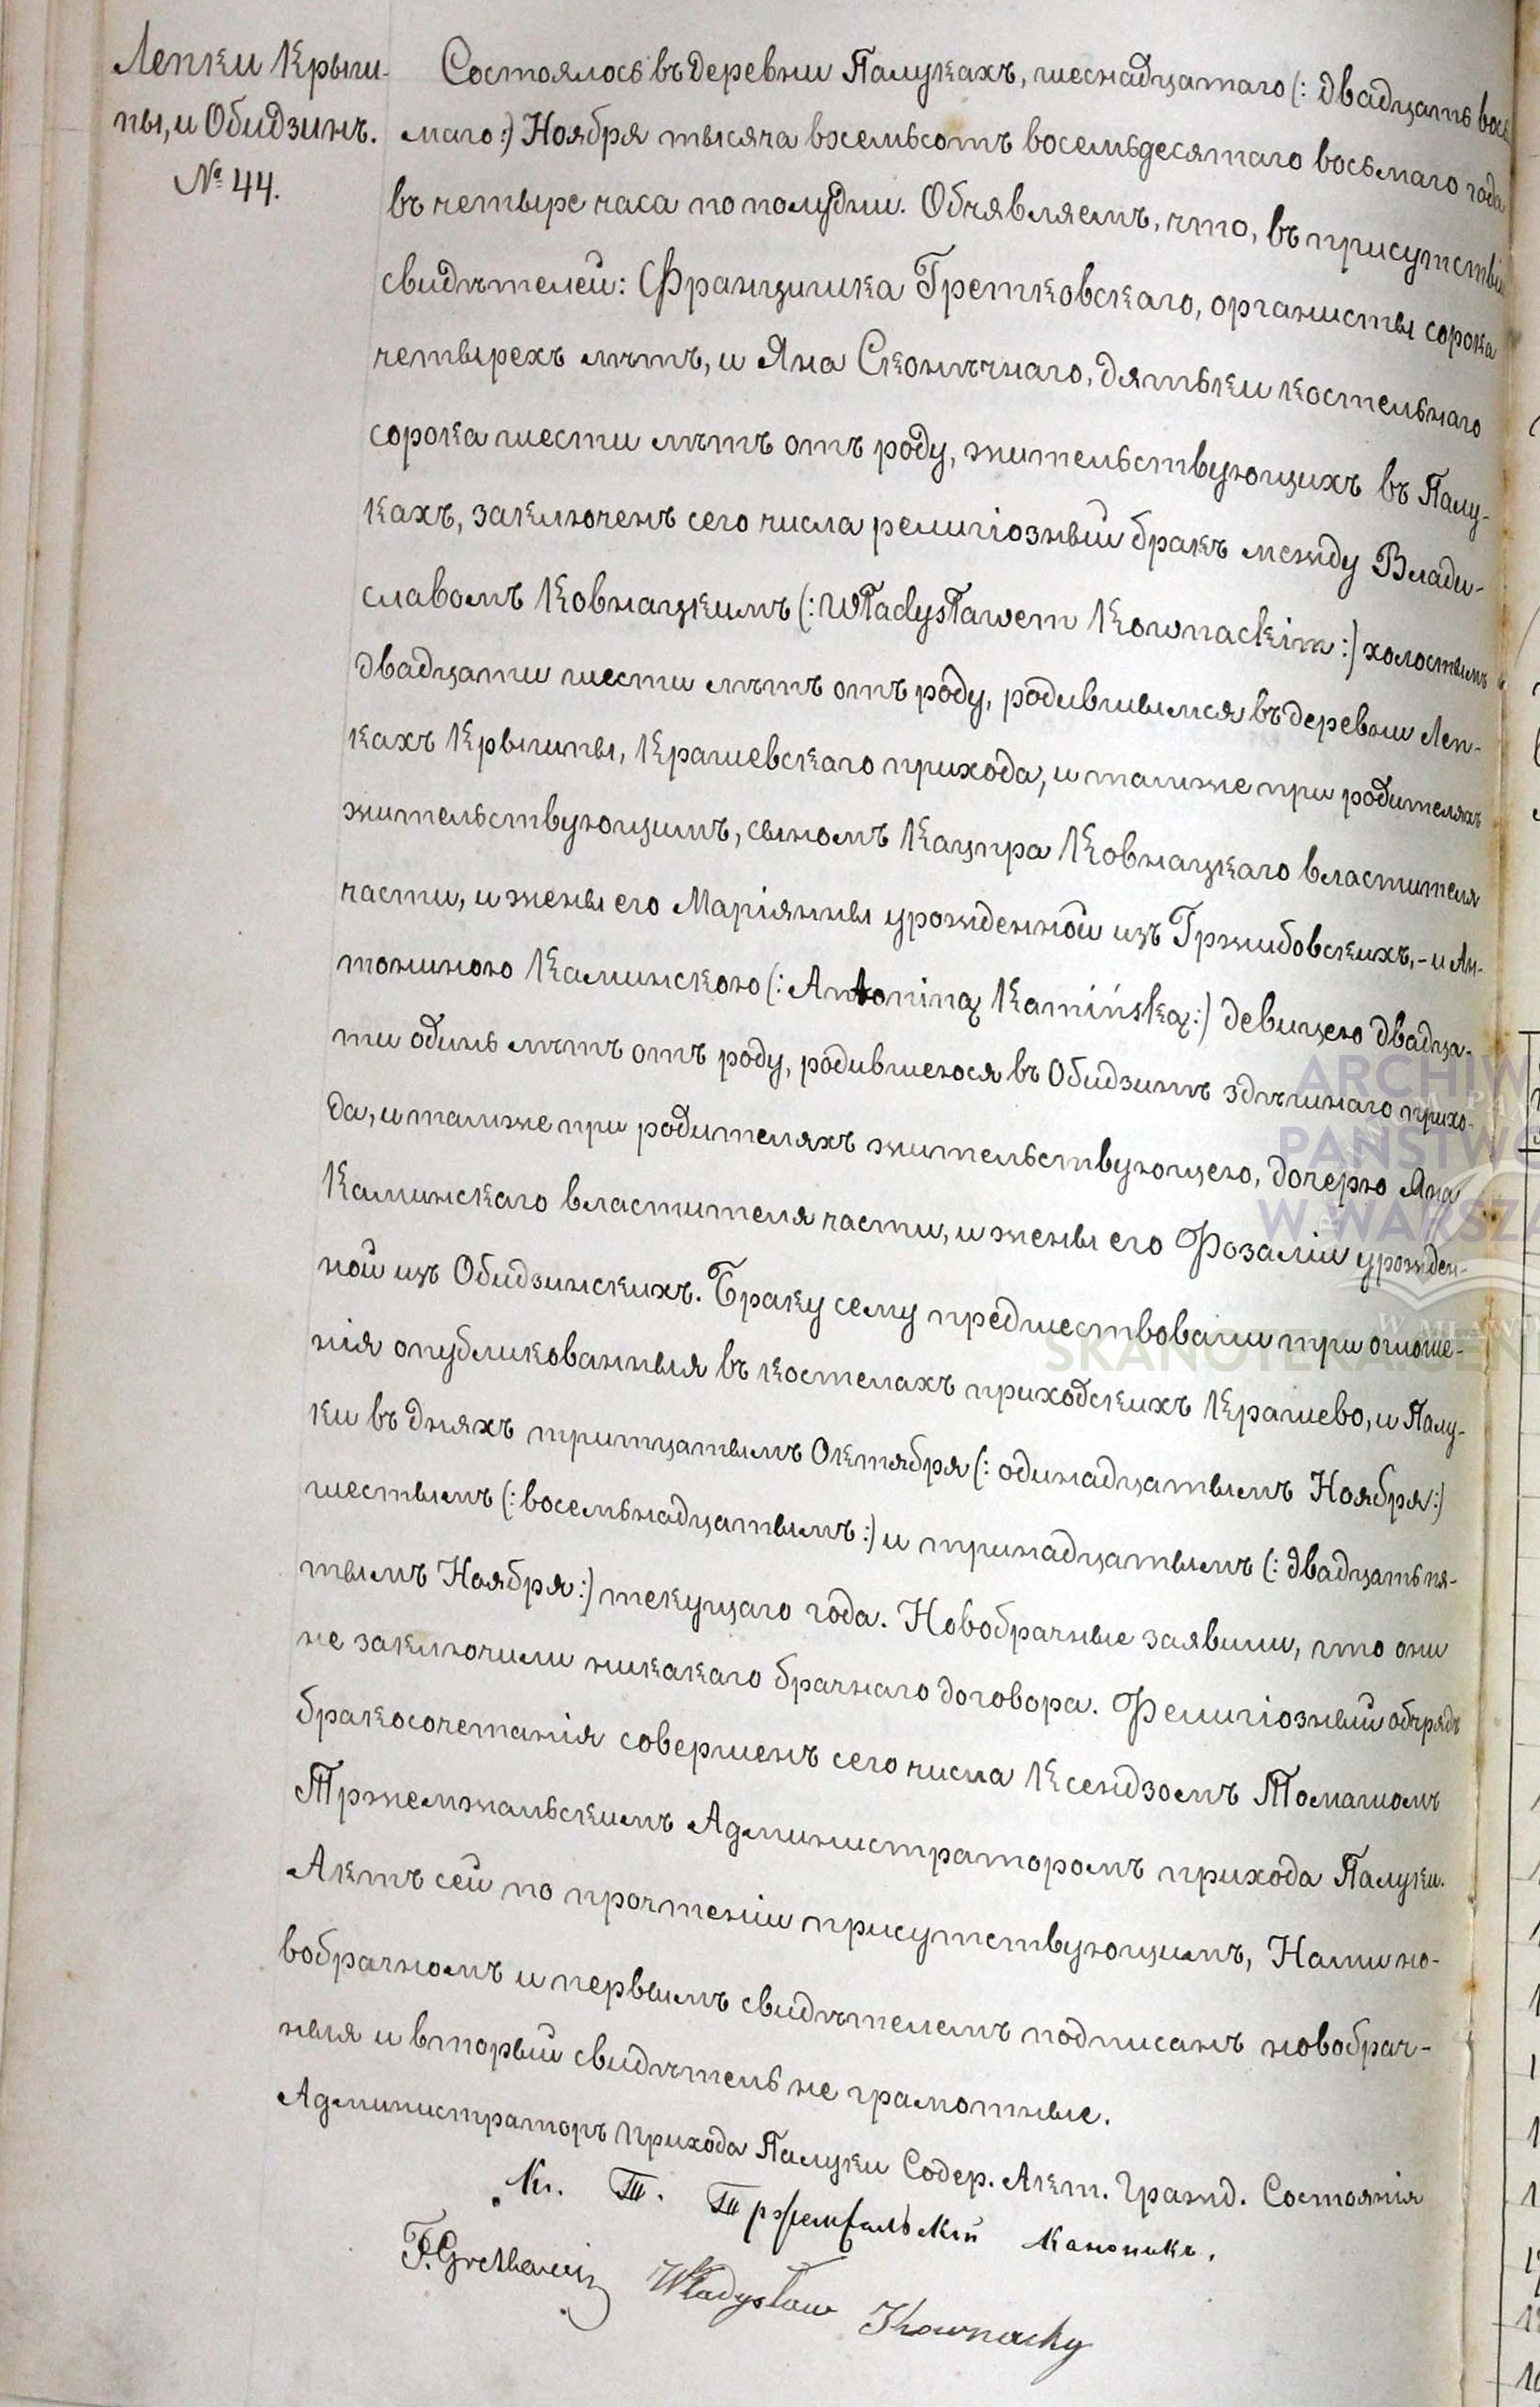 Лепки Крыги-
пы, и Обидзинъ.
№ 44.
Состоялось въ деревни Палукахъ, шеснадцатаго (: двадцать вось
маго :) Ноября тысяча восемьсотъ восемьдесятаго восьмаго года
въ четыре часа по полудни. Обчявляемъ, что, въ присутствіи
свидѣтелей: Францишка Гретковскаго, органисты сорока
четырехъ лѣтъ, и Яна Сконѣчнаго, дятьки костельнаго
сорока шести лѣтъ отъ роду, жительствующихъ въ Палу-
кахъ, заключенъ сего числа религіозный бракъ между Влади-
славомъ Ковнацкимъ (: Władysławem Kownackim :) холостымъ
двадцати шести лѣтъ отъ роду, родившымся въ деревни Леп-
кахъ Крыгипы, Крашевскаго прихода, и тамже при родителяхъ
жительствующимъ, сыномъ Кацпра Ковнацкаго властителя
части, и жены его Маріянны урожденной изъ Гржибовскихъ, - и Ан-
тониною Каминскою (: Antoniną Kamińską :) девицею двадца-
ти одинь лѣтъ отъ роду, родившеюся въ Обидзинѣ здѣшнаго прихо-
да, и тамже при родителяхъ жительствующею, дочерю Яна
Каминскаго властителя части, и жены его Розаліи урожден-
ной изъ Обидзинскихъ. Браку сему предшествовали три оглоше-
нія опубликованныя въ костелахъ приходскихъ Крашево, и Палу-
ки въ дняхъ тритцатымъ Октября (: одинадцатымъ Ноября :)
шестымъ (: восемьнадцатымъ :) и тринадцатымъ (: двадцать пя-
тымъ Ноября :) текущаго года. Новобрачные заявили, что они
не заключили никакаго брачнаго договора. Религіозный обчрядъ
бракосочетанія совершенъ сего числа Ксендзомъ Томашомъ
Тржемжальскимъ Администраторомъ прихода Палуки.
Актъ сей по прочтеніи присутствующимъ, Нами но-
вобрачномъ и первымъ свидѣтелемъ подписанъ новобрач-
ныя и вторый свидѣтель не грамотные.
Администраторъ прихода Палуки Содер. Акт. Гражд. Состоянія
Кс. Т. Тржемжальскій Каноникъ.
F. Gretkowski Władysław Kownacky
ARCHIW
PAŃSTWO
W WARSZA
W MŁAWI
SKANOTEKA